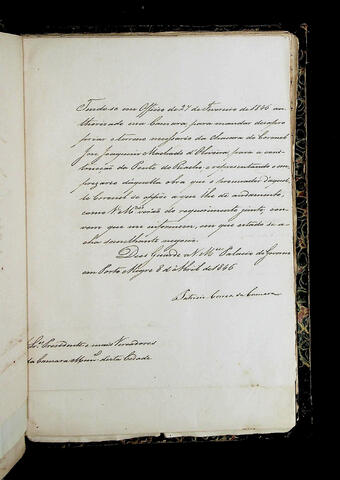 Tendo-se em Officio de 27 de Fevereiro de 1846 au-
thorisado essa Camara para mandar desapro
priar o terreno necessario da chacara do Coronel
José Joaquim Machado d'Oliveira para a cons-
trucção da Ponte do Riacho, e representando o em-
prezario daquella obra que o procurador daquel-
le Coronel se oppõe a que lhe dê andamento,
como V Mces verão do requerimento junto, con-
vem que me informem, em que estado se a-
cha semelhante negocio.
Deos Guarde a V Mces Palacio do Governo
em Porto Alegre 8 d'Abril de 1846
Patricio Correa da Camara
Srs. Presidente e mais Vereadores
da Camara Munal desta Cidade